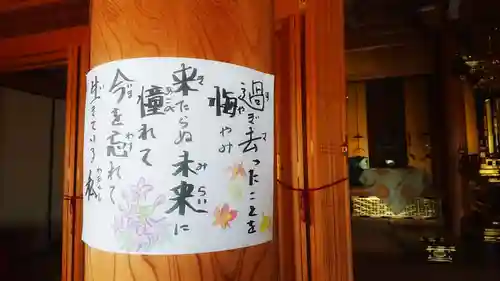 過ぎ去ったことを
悔やみ
来たらぬ未来に
憧れて
今を忘れて
生きている私